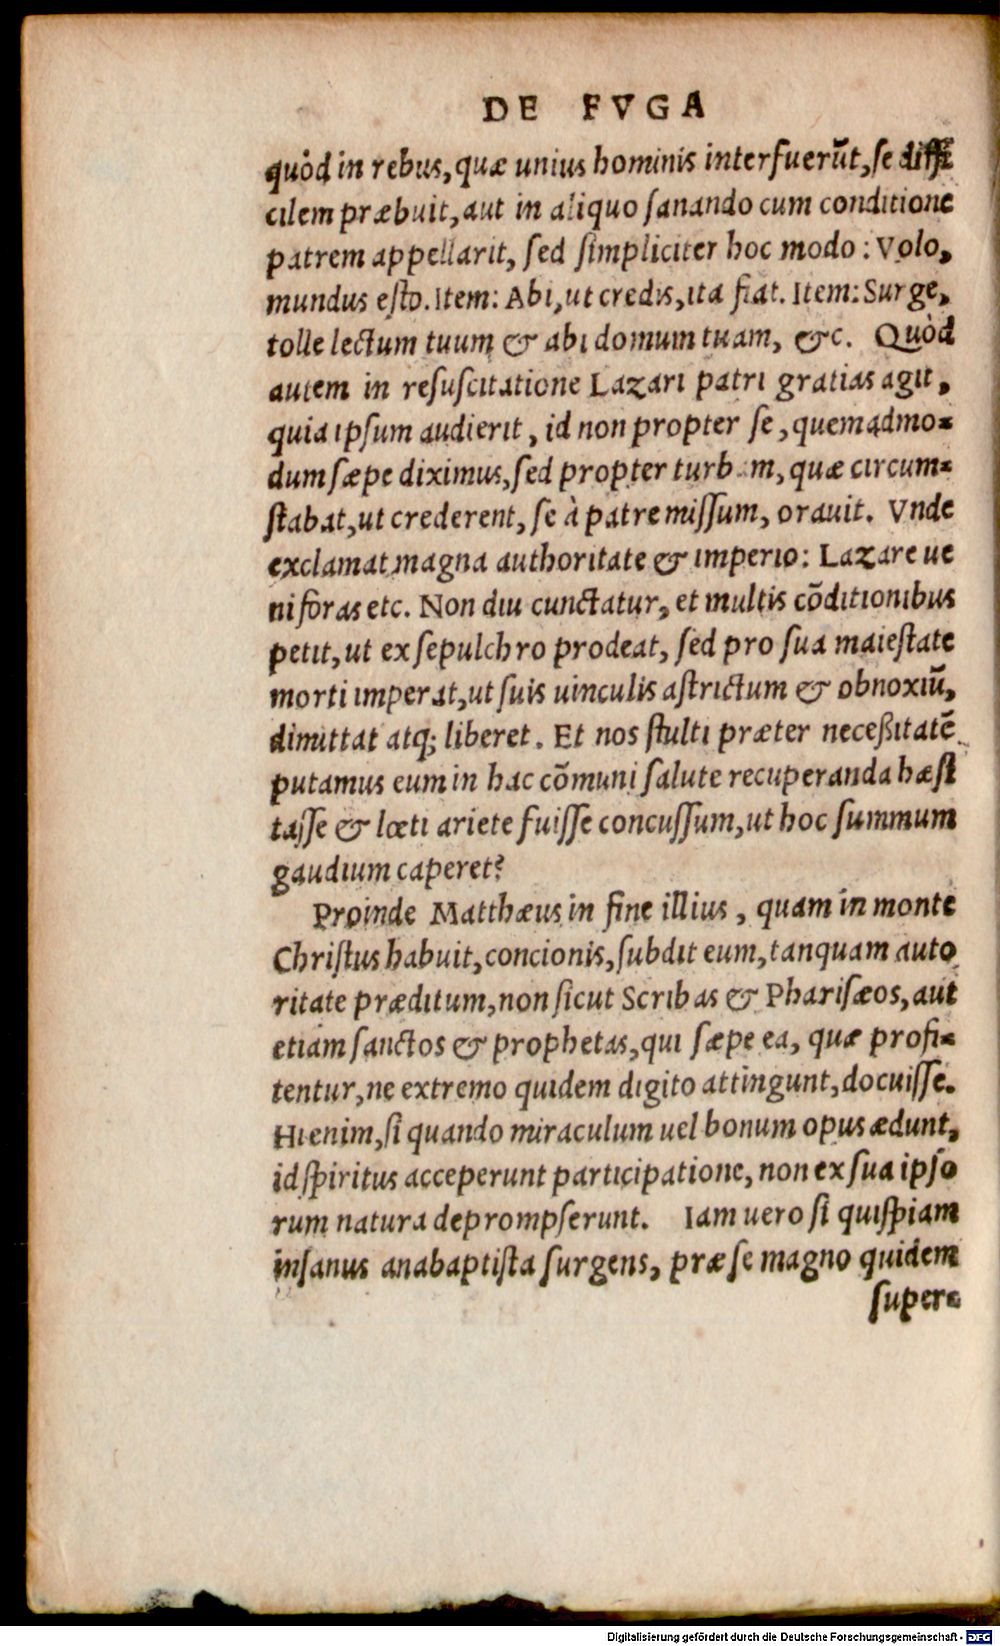 DE FVGA
quòd in rebus, quæ unius hominis interfuerūt, se diffi
cilem præbuit, aut in aliquo sanando cum conditione
patrem appellarit, sed simpliciter hoc modo: Volo,
mundus esto. Item: Abi, ut credis, ita fiat. Item: Surge,
tolle lectum tuum & abi domum tuam, &c. Quòd
autem in resuscitatione Lazari patri gratias agit,
quia ipsum audierit, id non propter se, quemadmo-
dum sæpe diximus, sed propter turbam, quæ circum-
stabat, ut crederent, se à patre missum, orauit. Vnde
exclamat magna authoritate & imperio: Lazare ue
ni foras etc. Non diu cunctatur, et multis cōditionibus
petit, ut ex sepulchro prodeat, sed pro sua maiestate
morti imperat, ut suis uinculis astrictum & obnoxiū,
dimittat atq; liberet. Et nos stulti præter neceßitatē
putamus eum in hac cōmuni salute recuperanda hæsi
tasse & lœti ariete fuisse concussum, ut hoc summum
gaudium caperet?
Proinde Matthæus in fine illius, quam in monte
Christus habuit, concionis, subdit eum, tanquam auto
ritate præditum, non sicut Scribas & Pharisæos, aut
etiam sanctos & prophetas, qui sæpe ea, quæ profi-
tentur, ne extremo quidem digito attingunt, docuisse.
Hi enim, si quando miraculum uel bonum opus ædunt,
id spiritus acceperunt participatione, non ex sua ipso
rum natura deprompserunt. Iam uero si quispiam
insanus anabaptista surgens, præ se magno quidem
super-
Digitalisierung gefördert durch die Deutsche Forschungsgemeinschaft - DFG